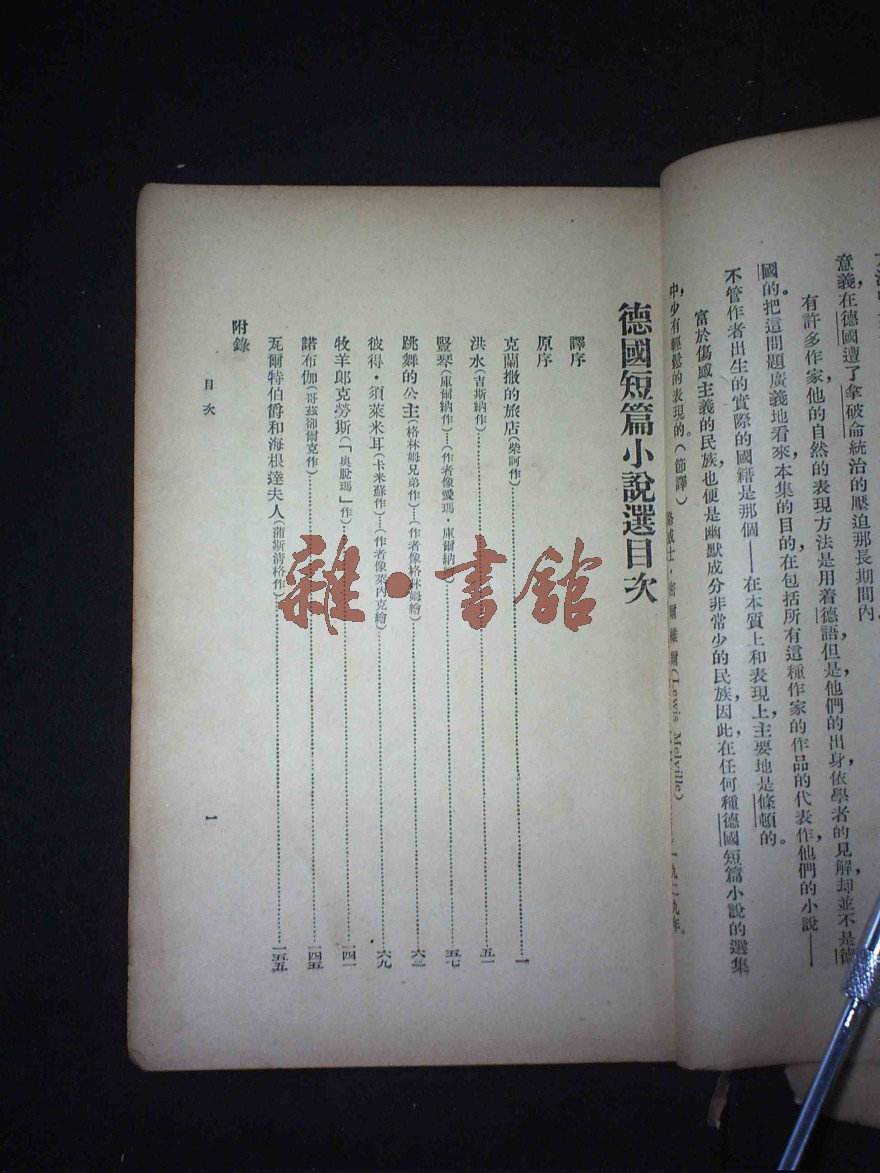 意義，在德國遭了拿破侖統治的壓迫那長期間內。
有許多作家他的自然的表現方法是用着德語，但是他們的出身依學者的見解，却並不是德
國的。把這問題廣義地看來，本集的目的在包括所有這種作家的作品的代表作，他們的小說——
不管作者出生的實際的國籍是那個——在本質上和表現上，主要地是條頓的。
富於傷感主義的民族，也便是幽默成分非常少的民族，因此，在任何種德國短篇小說的選集
中，少有輕鬆的表現的。（節譯）
路威士·密爾維爾(Lewis Melville) 一九二九年。
德國短篇小說選目次
譯序
原序
克蘭撒的旅店(柴訶作)……一
洪水(吉斯納作)……五一
豎琴(庫爾納作)—(作者像愛瑪·庫爾納繪)……五七
跳舞的公主(格林姆兄弟作)—(作者像格林姆繪)……六三
彼得·須萊米耳(卡米蘇作)—(作者像萊內克繪)……六九
牧羊郎克勞斯(「奧脫瑪」作)……一四一
諾布伽(哥茲卻爾克作)……一四五
瓦爾特伯爵和海根達夫人(蒲斯清格作)……一五五
附錄
目次
一
雜·書館